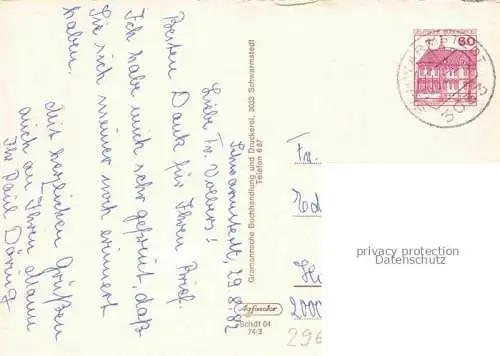 Schwarmstedt, 29.8.82
Liebe Fr. Volbers!
Besten Dank für Ihren Brief.
Ich habe mich sehr gefreut, daß
Sie sich meiner noch erinnert
haben.
Mit herzlichen Grüßen
auch an Ihren Mann
Ihr Paul Döring
Gramannsche Buchhandlung und Druckerei, 3033 Schwarmstedt
Telefon 6 87
Agfacolor
Schdt 04
74/3
DEUTSCHE BUNDESPOST
60
Fr.
2000
296
privacy protection
Datenschutz